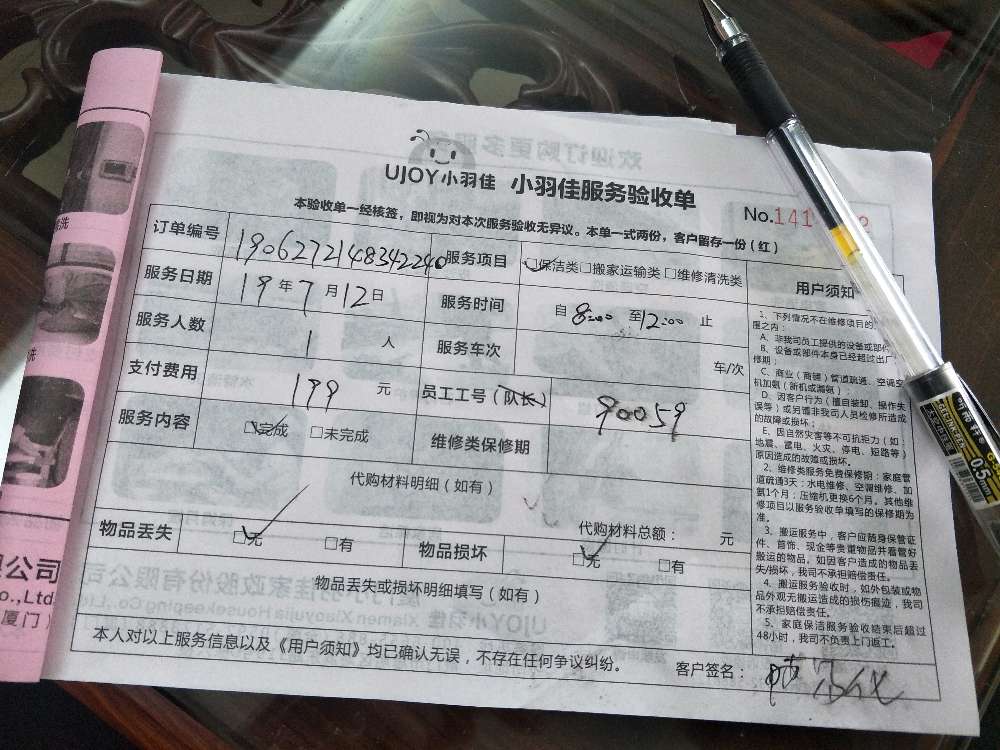 UJOY小羽佳 小羽佳服务验收单
No.141
本验收单一经核签，即视为对本次服务验收无异议。本单一式两份，客户留存一份（红）
订单编号 1906272148342240 服务项目 □保洁类□搬家运输类□维修清洗类
服务日期 19年7月12日 服务时间 自8:00至12:00止
服务人数 1人 服务车次 车/次
支付费用 199元 员工工号（队长） 90059
服务内容 □完成 □未完成 维修类保修期
代购材料明细（如有）
代购材料总额： 元
物品丢失 □无 □有 物品损坏 □无 □有
物品丢失或损坏明细填写（如有）
本人对以上服务信息以及《用户须知》均已确认无误，不存在任何争议纠纷。 客户签名：
用户须知
1、下列情况不在维修项目的
围之内：
A、非我司员工提供的设备或部件
B、设备或部件本身已经超过出厂
修期；
C、商业（商铺）管道疏通、空调空
机加氨（新机或漏氨）
D、因客户行为（擅自装卸、操作失
误等）或另请非我司人员检修所造成
的故障或损坏；
E、因自然灾害等不可抗拒力（如：
地震、雷电、火灾、停电、短路等）
原因造成的故障或损坏。
2、维修类服务免费保修期：家庭管
道疏通3天；水电维修、空调维修、加
氨1个月；压缩机更换6个月。其他维
修项目以服务验收单填写的保修期为
准。
3、搬运服务中，客户应随身保管证
件、首饰、现金等贵重物件并看管好
搬运的物品。如因客户造成的物品丢
失/损坏，我司不承担赔偿责任。
4、搬运服务验收时，如外包装或物
品外观无搬运造成的损伤痕迹，我司
不承担赔偿责任。
5、家庭保洁服务验收结束后超过
48小时，我司不负责上门返工。
公司
o.,Ltd
厦门）
0.5